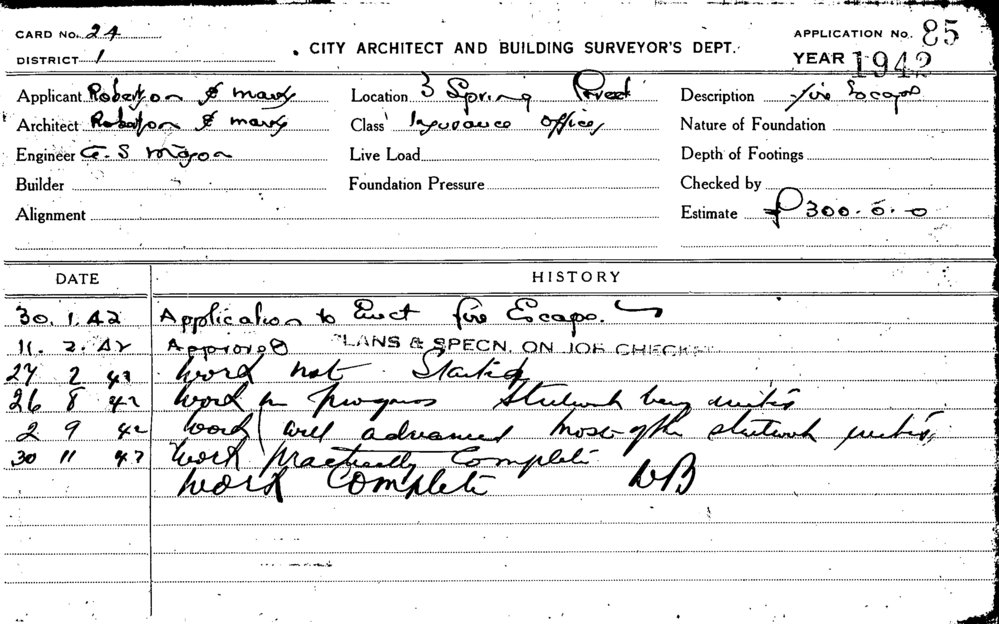 CARD No. 24
DISTRICT 1
CITY ARCHITECT AND BUILDING SURVEYOR'S DEPT.
APPLICATION No. 85
YEAR 1942
Applicant Robertson & Marks Location 3 Spring Street Description Fire Escape
Architect Robertson & Marks Class Insurance Offices Nature of Foundation
Engineer G. S Live Load Depth of Footings
Builder Foundation Pressure Checked by
Alignment Estimate £300.0.0
DATE HISTORY
30.1.42 Application to Erect fire Escape.
11.2.42 Approved PLANS & SPECN. ON JOB CHECKED
27 2 42 Work not Started
26 8 42 Work in progress Steelwork being
2 9 42 Work well advanced most of the steelwork
30 11 42 Work practically Complete
Work Complete WB